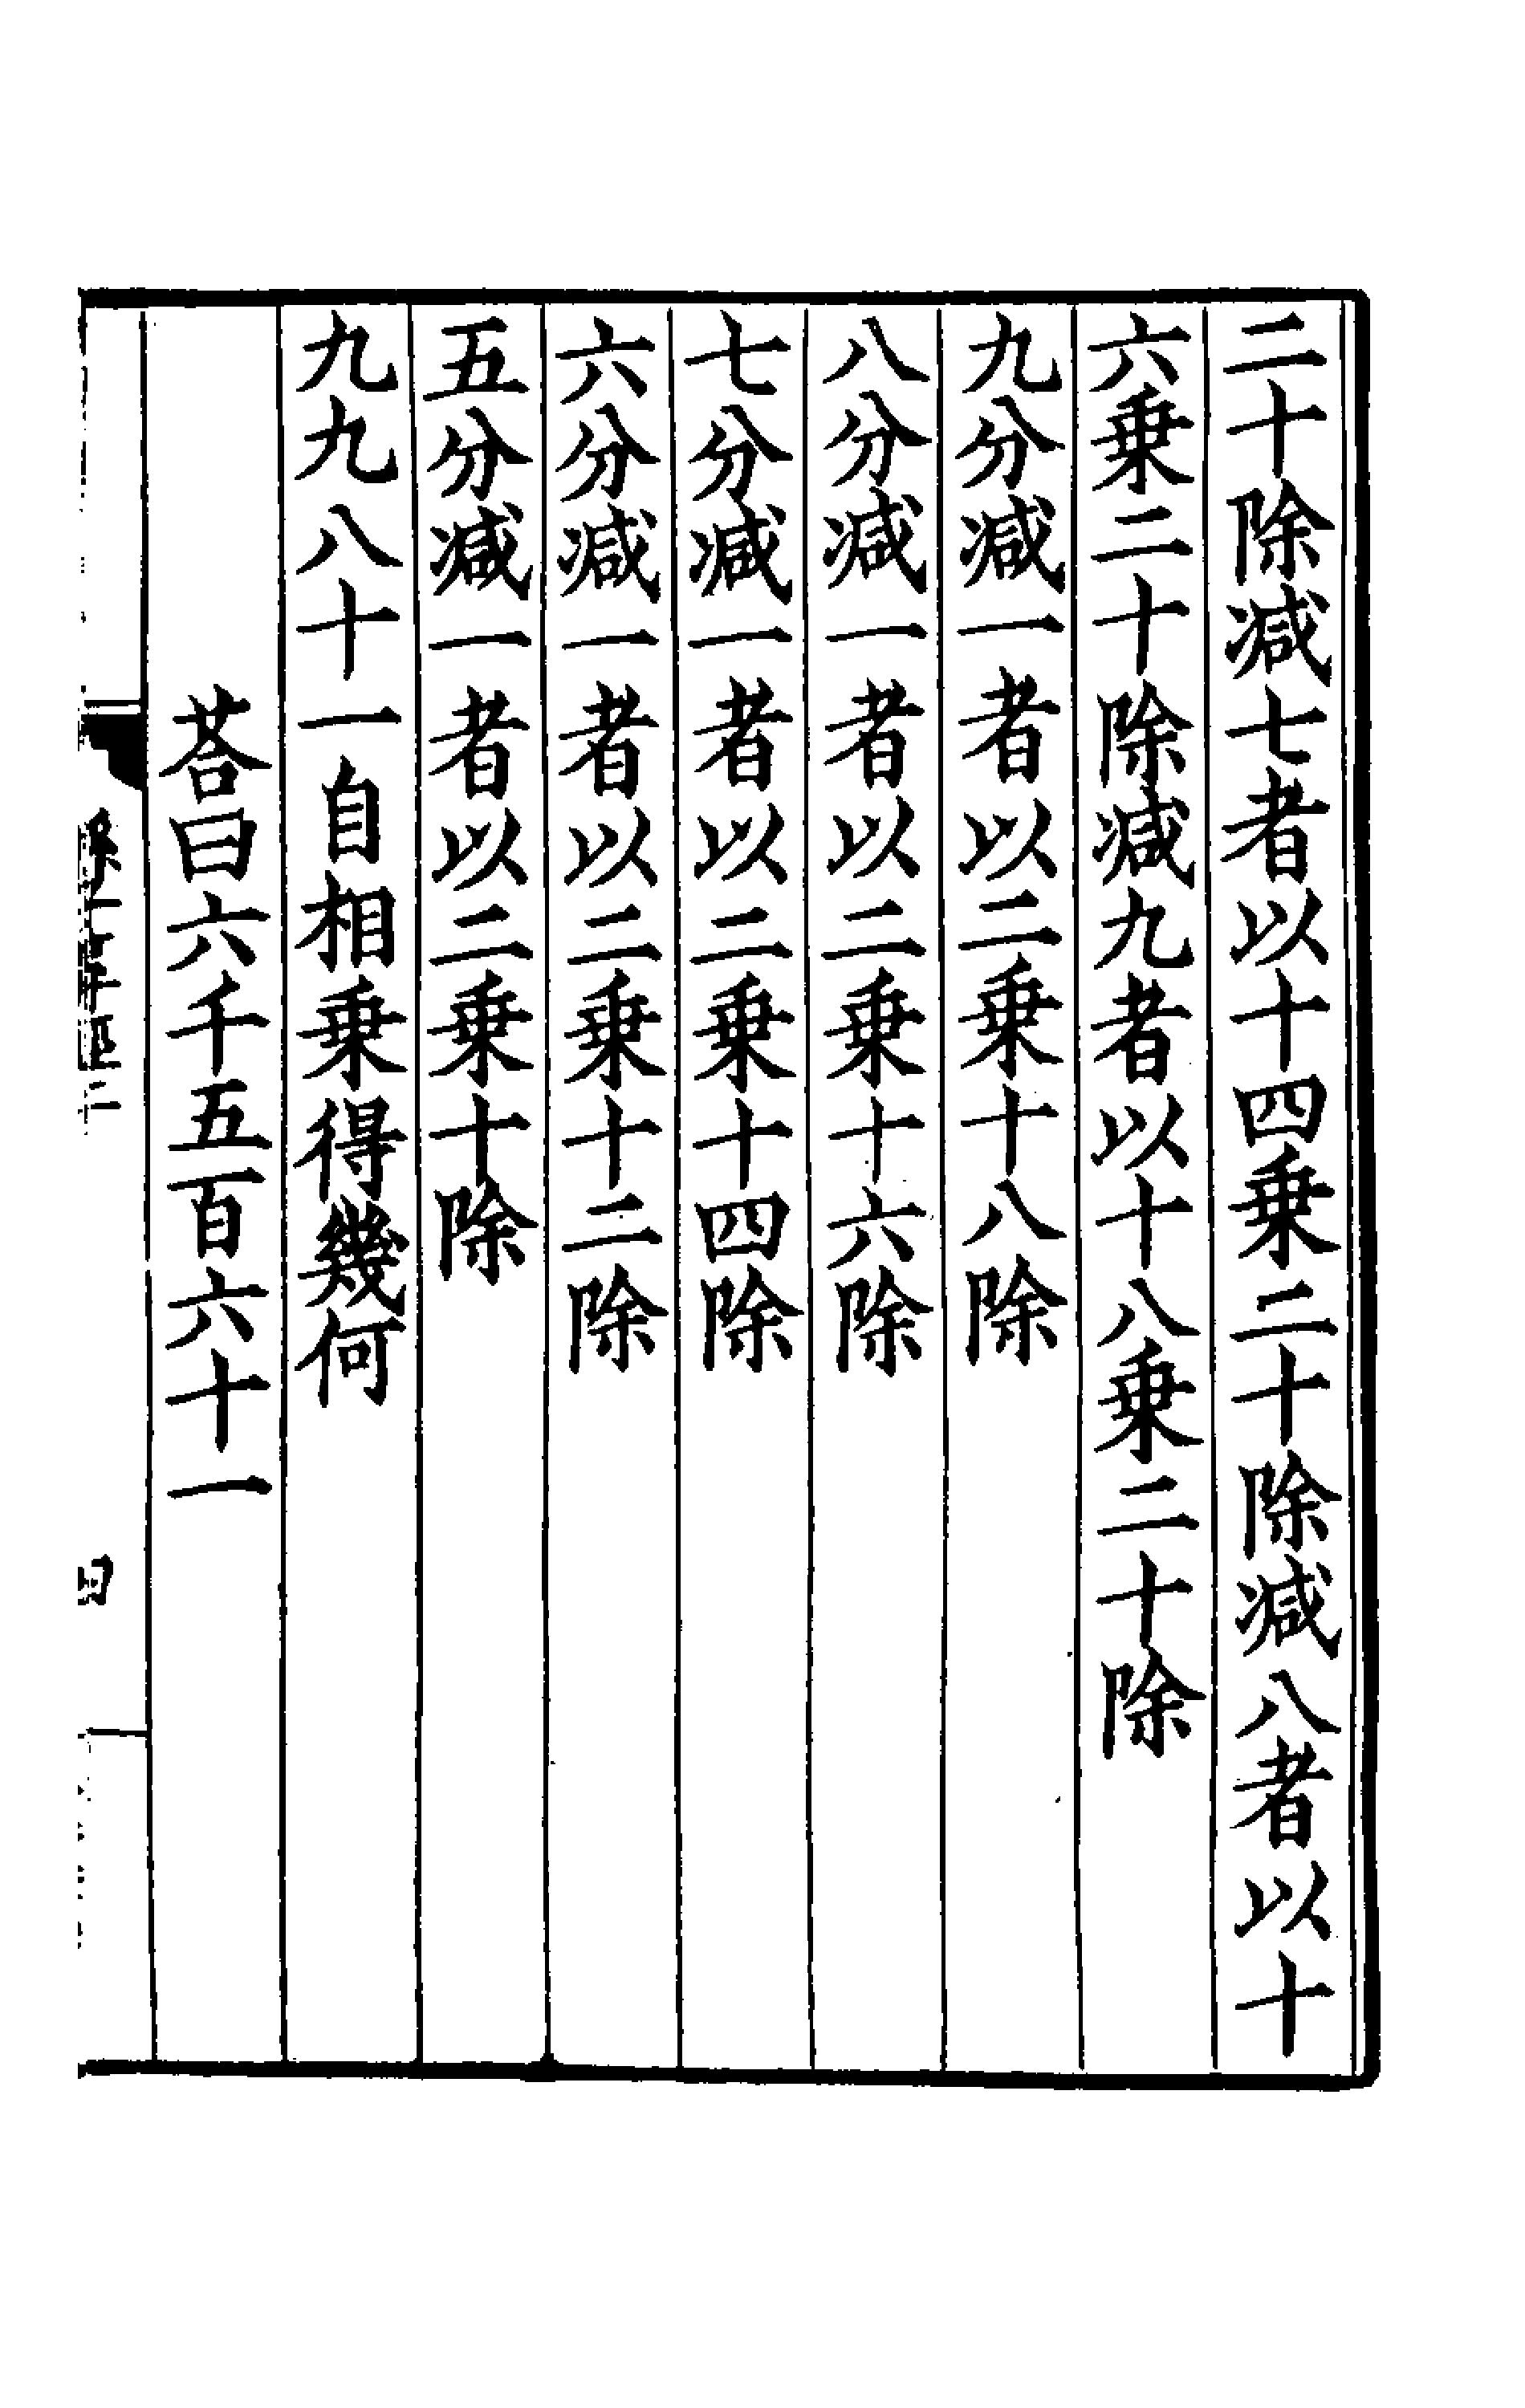 二十除減七者以十四乗二十除減八者以十
六乗二十除減九者以十八乗二十除
九分減一者以二乗十八除
八分減一者以二乗十六除
七分減一者以二乗十四除
六分減一者以二乗十二除
五分減一者以二乗十除
九九八十一自相乗得幾何
荅曰六千五百六十一